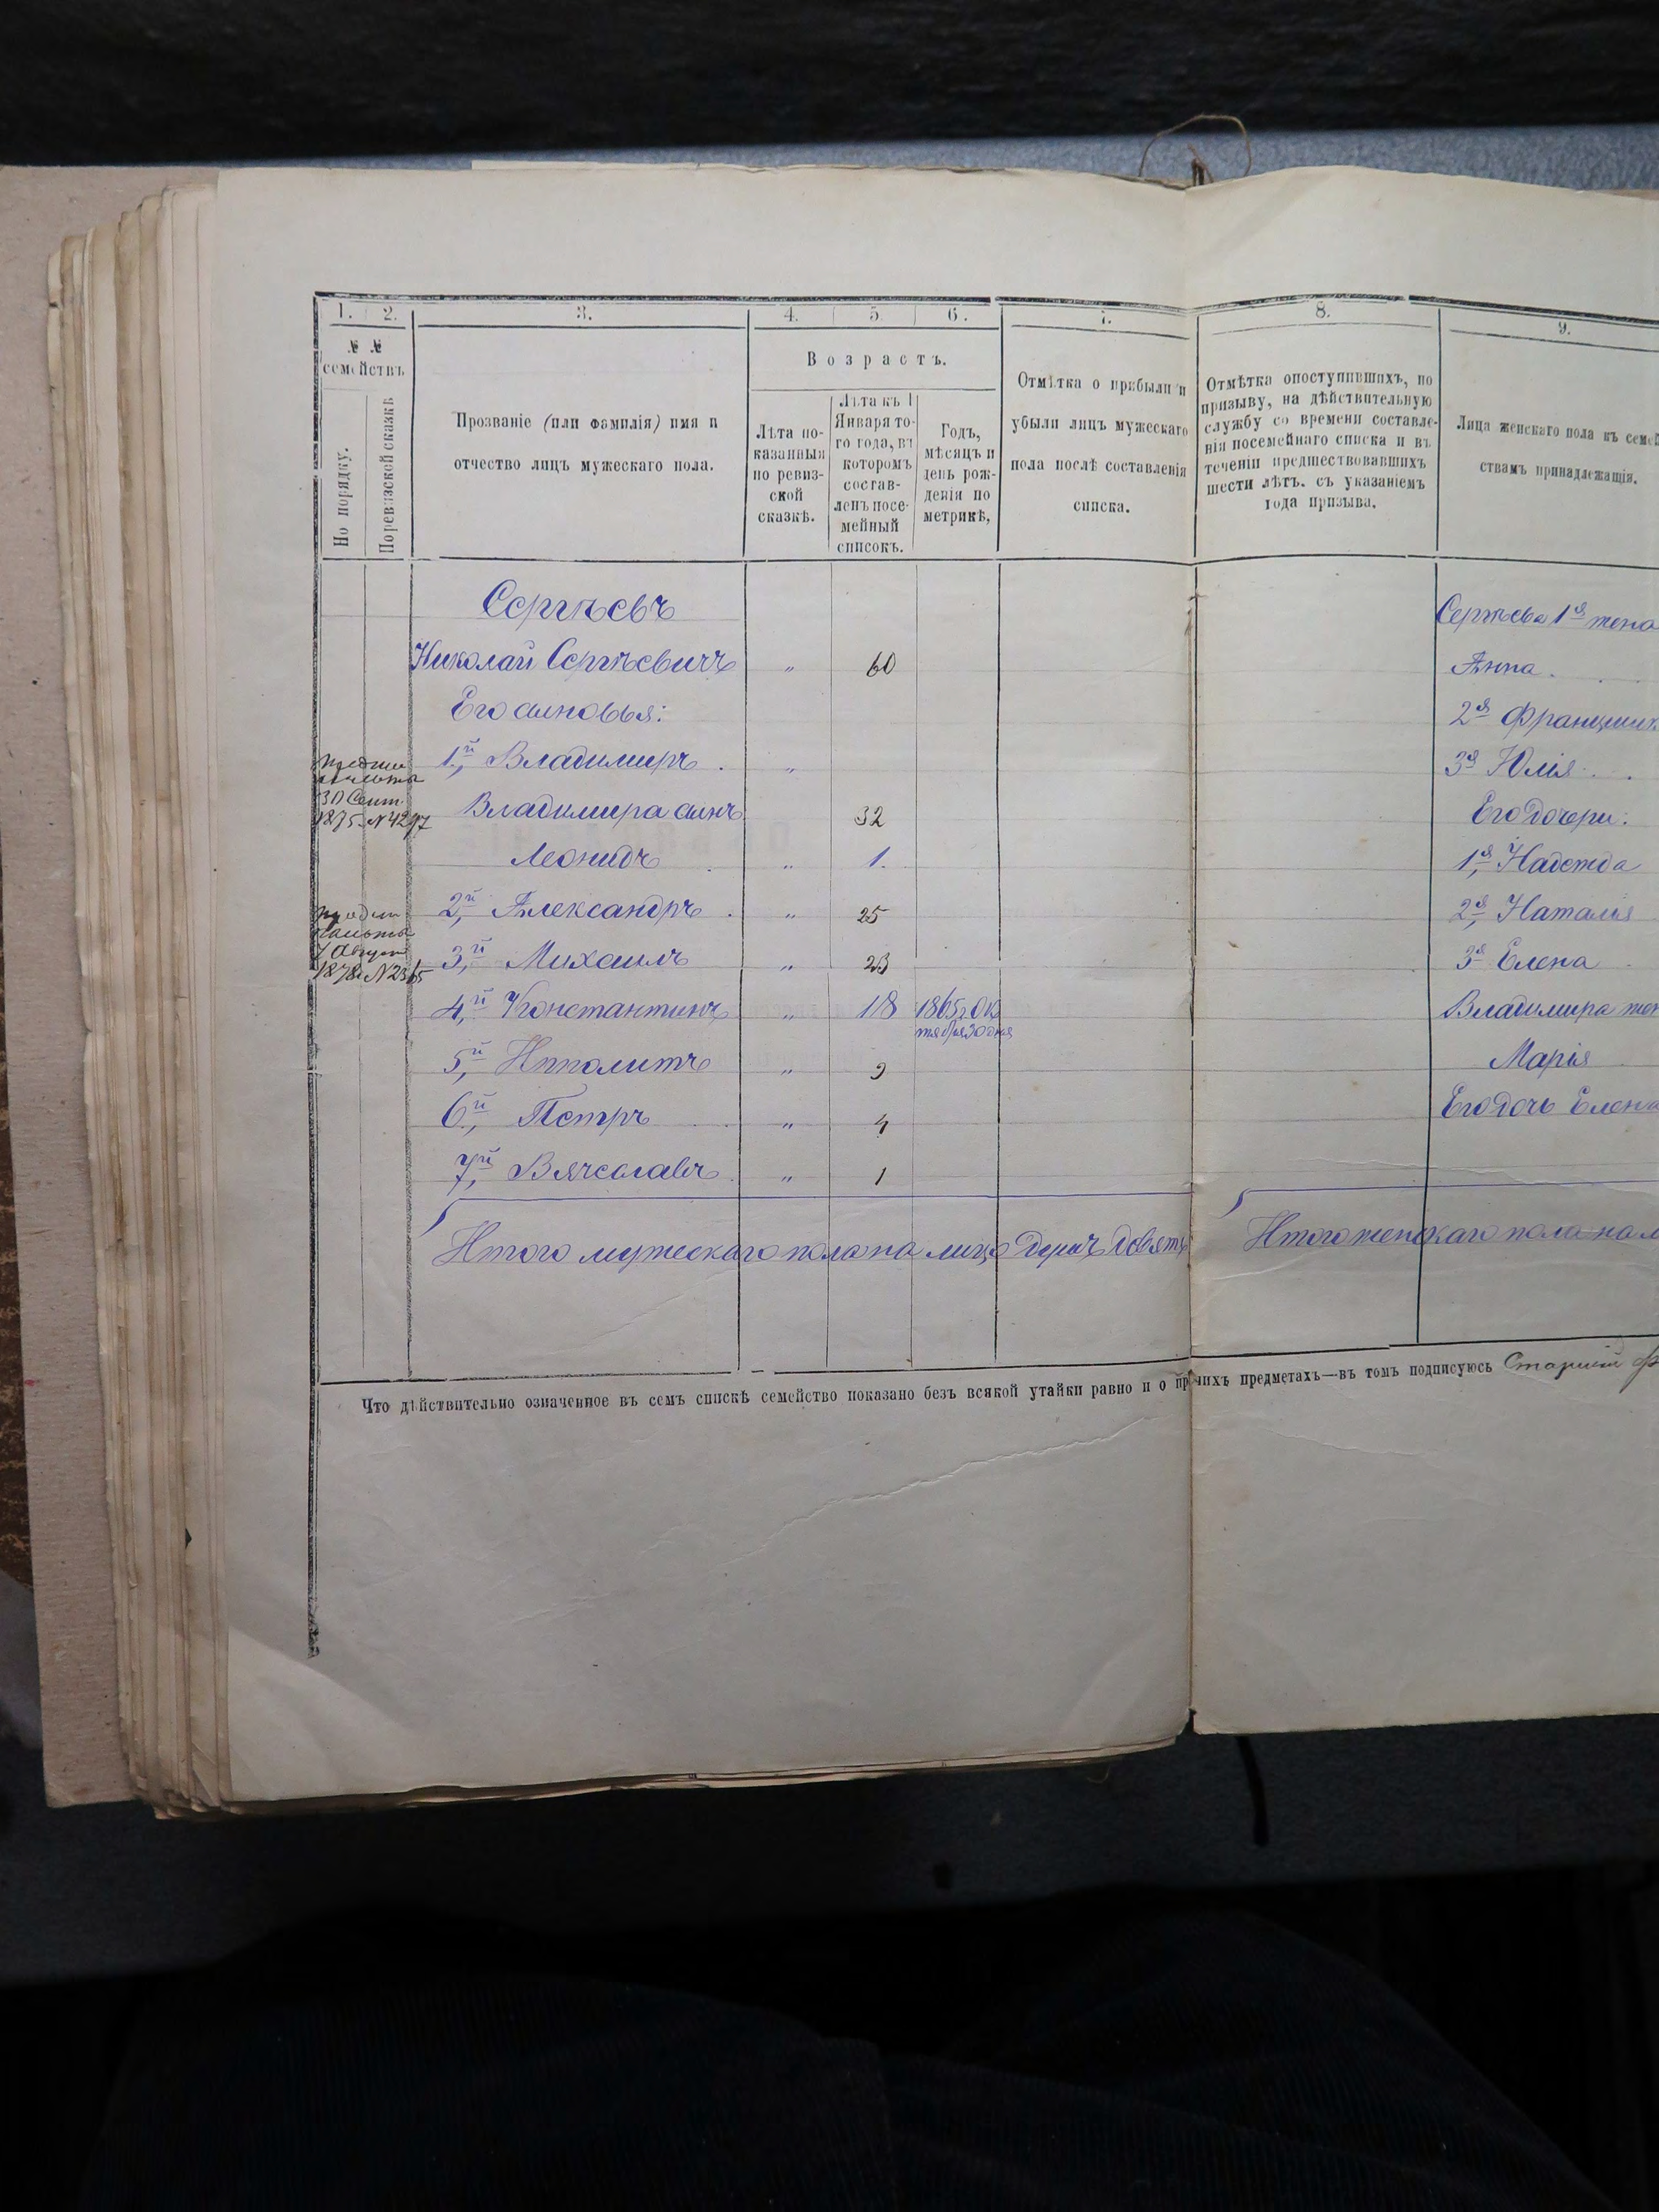 1. 2. 3. 4. 5. 6. 7. 8. 9.
№ №
семействъ
По порядку.
По ревизской сказкѣ
Прозваніе (или фамилія) имя и
отчество лицъ мужескаго пола.
Возрастъ.
Лѣта по-
казанныя
по ревиз-
ской
сказкѣ.
Лѣта къ 1
Января то-
го года, въ
которомъ
состав-
ленъ посе-
мейный
списокъ.
Годъ,
мѣсяцъ и
день рож-
денія по
метрикѣ,
Отмѣтка о прибыли и
убыли лицъ мужескаго
пола послѣ составленія
списка.
Отмѣтка опоступившихъ, по
призыву, на дѣйствительную
службу со времени составле-
нія посемейнаго списка и въ
теченіи предшествовавшихъ
шести лѣтъ. съ указаніемъ
года призыва.
Лица женскаго пола къ семей
ствамъ принадлежащія.
Сергѣевъ
Сергѣева 1я жена
Николай Сергѣевичъ " 60
Анна.
Его сыновья:
2я Францишк
1й, Владимиръ. "
3я Юлія
30 Сент.
1875 N 4297
Владимира сынъ 32
Его дочери:
Леонидъ " 1.
1я, Надежда
2й, Александръ. " 25
2я, Наталія
7 Август
1878 N 2365
3й, Михаилъ " 23
3я Елена
4й, Константинъ " 18 1865г. Ок
тября 30 дня
Владимира жен
5й, Ипполитъ " 9
Марія
6й, Петръ " 4
Его дочь Елена
7й, Вячеславъ. " 1
Итого мужескаго пола на лицо душъ девять
Итого женскаго пола на л
Что дѣйствительно означенное въ семъ спискѣ семейство показано безъ всякой утайки равно и о прочихъ предметахъ—въ томъ подписуюсь Старшій